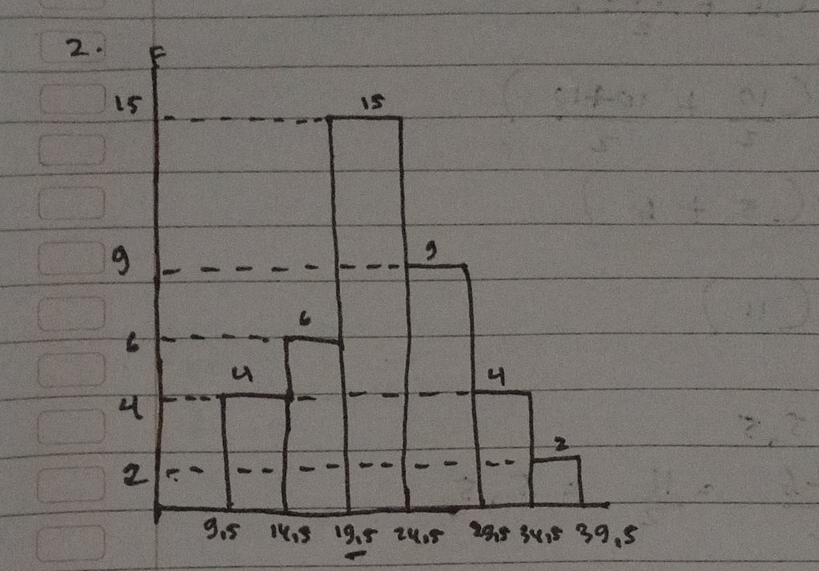 2. F
15 15
9 9
6 6
4 4 4
2 2
9,5 14,5 19,5 24,5 29,5 34,5 39,5